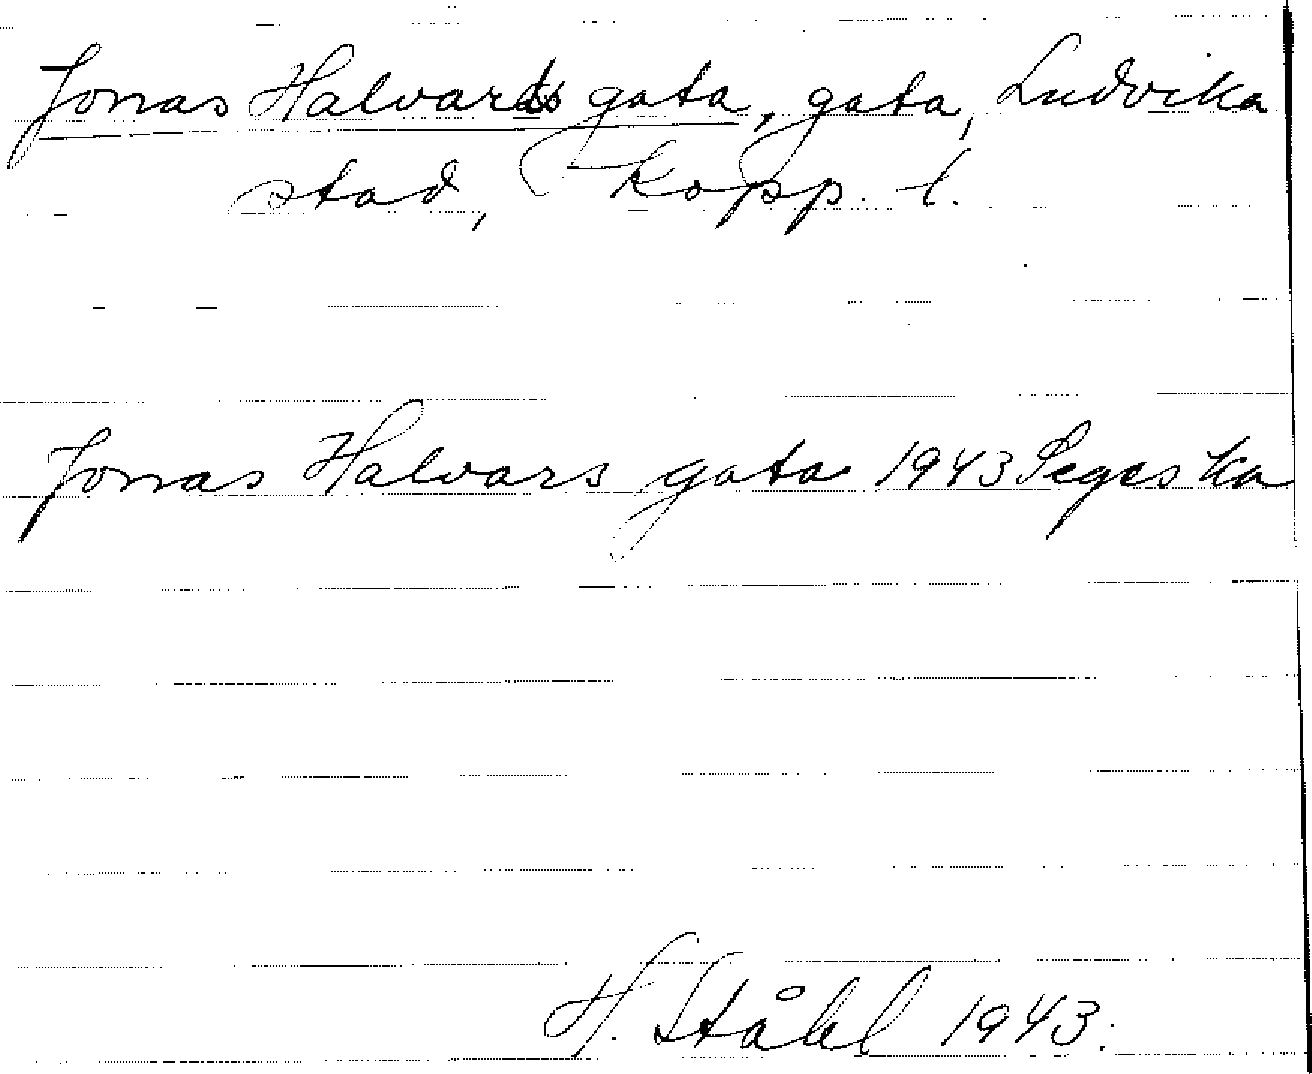 Jonas Halvards gata, gata, Ludvika
stad, Kopp. l.
Jonas Halvars gata 1943
H. Ståhl 1943.